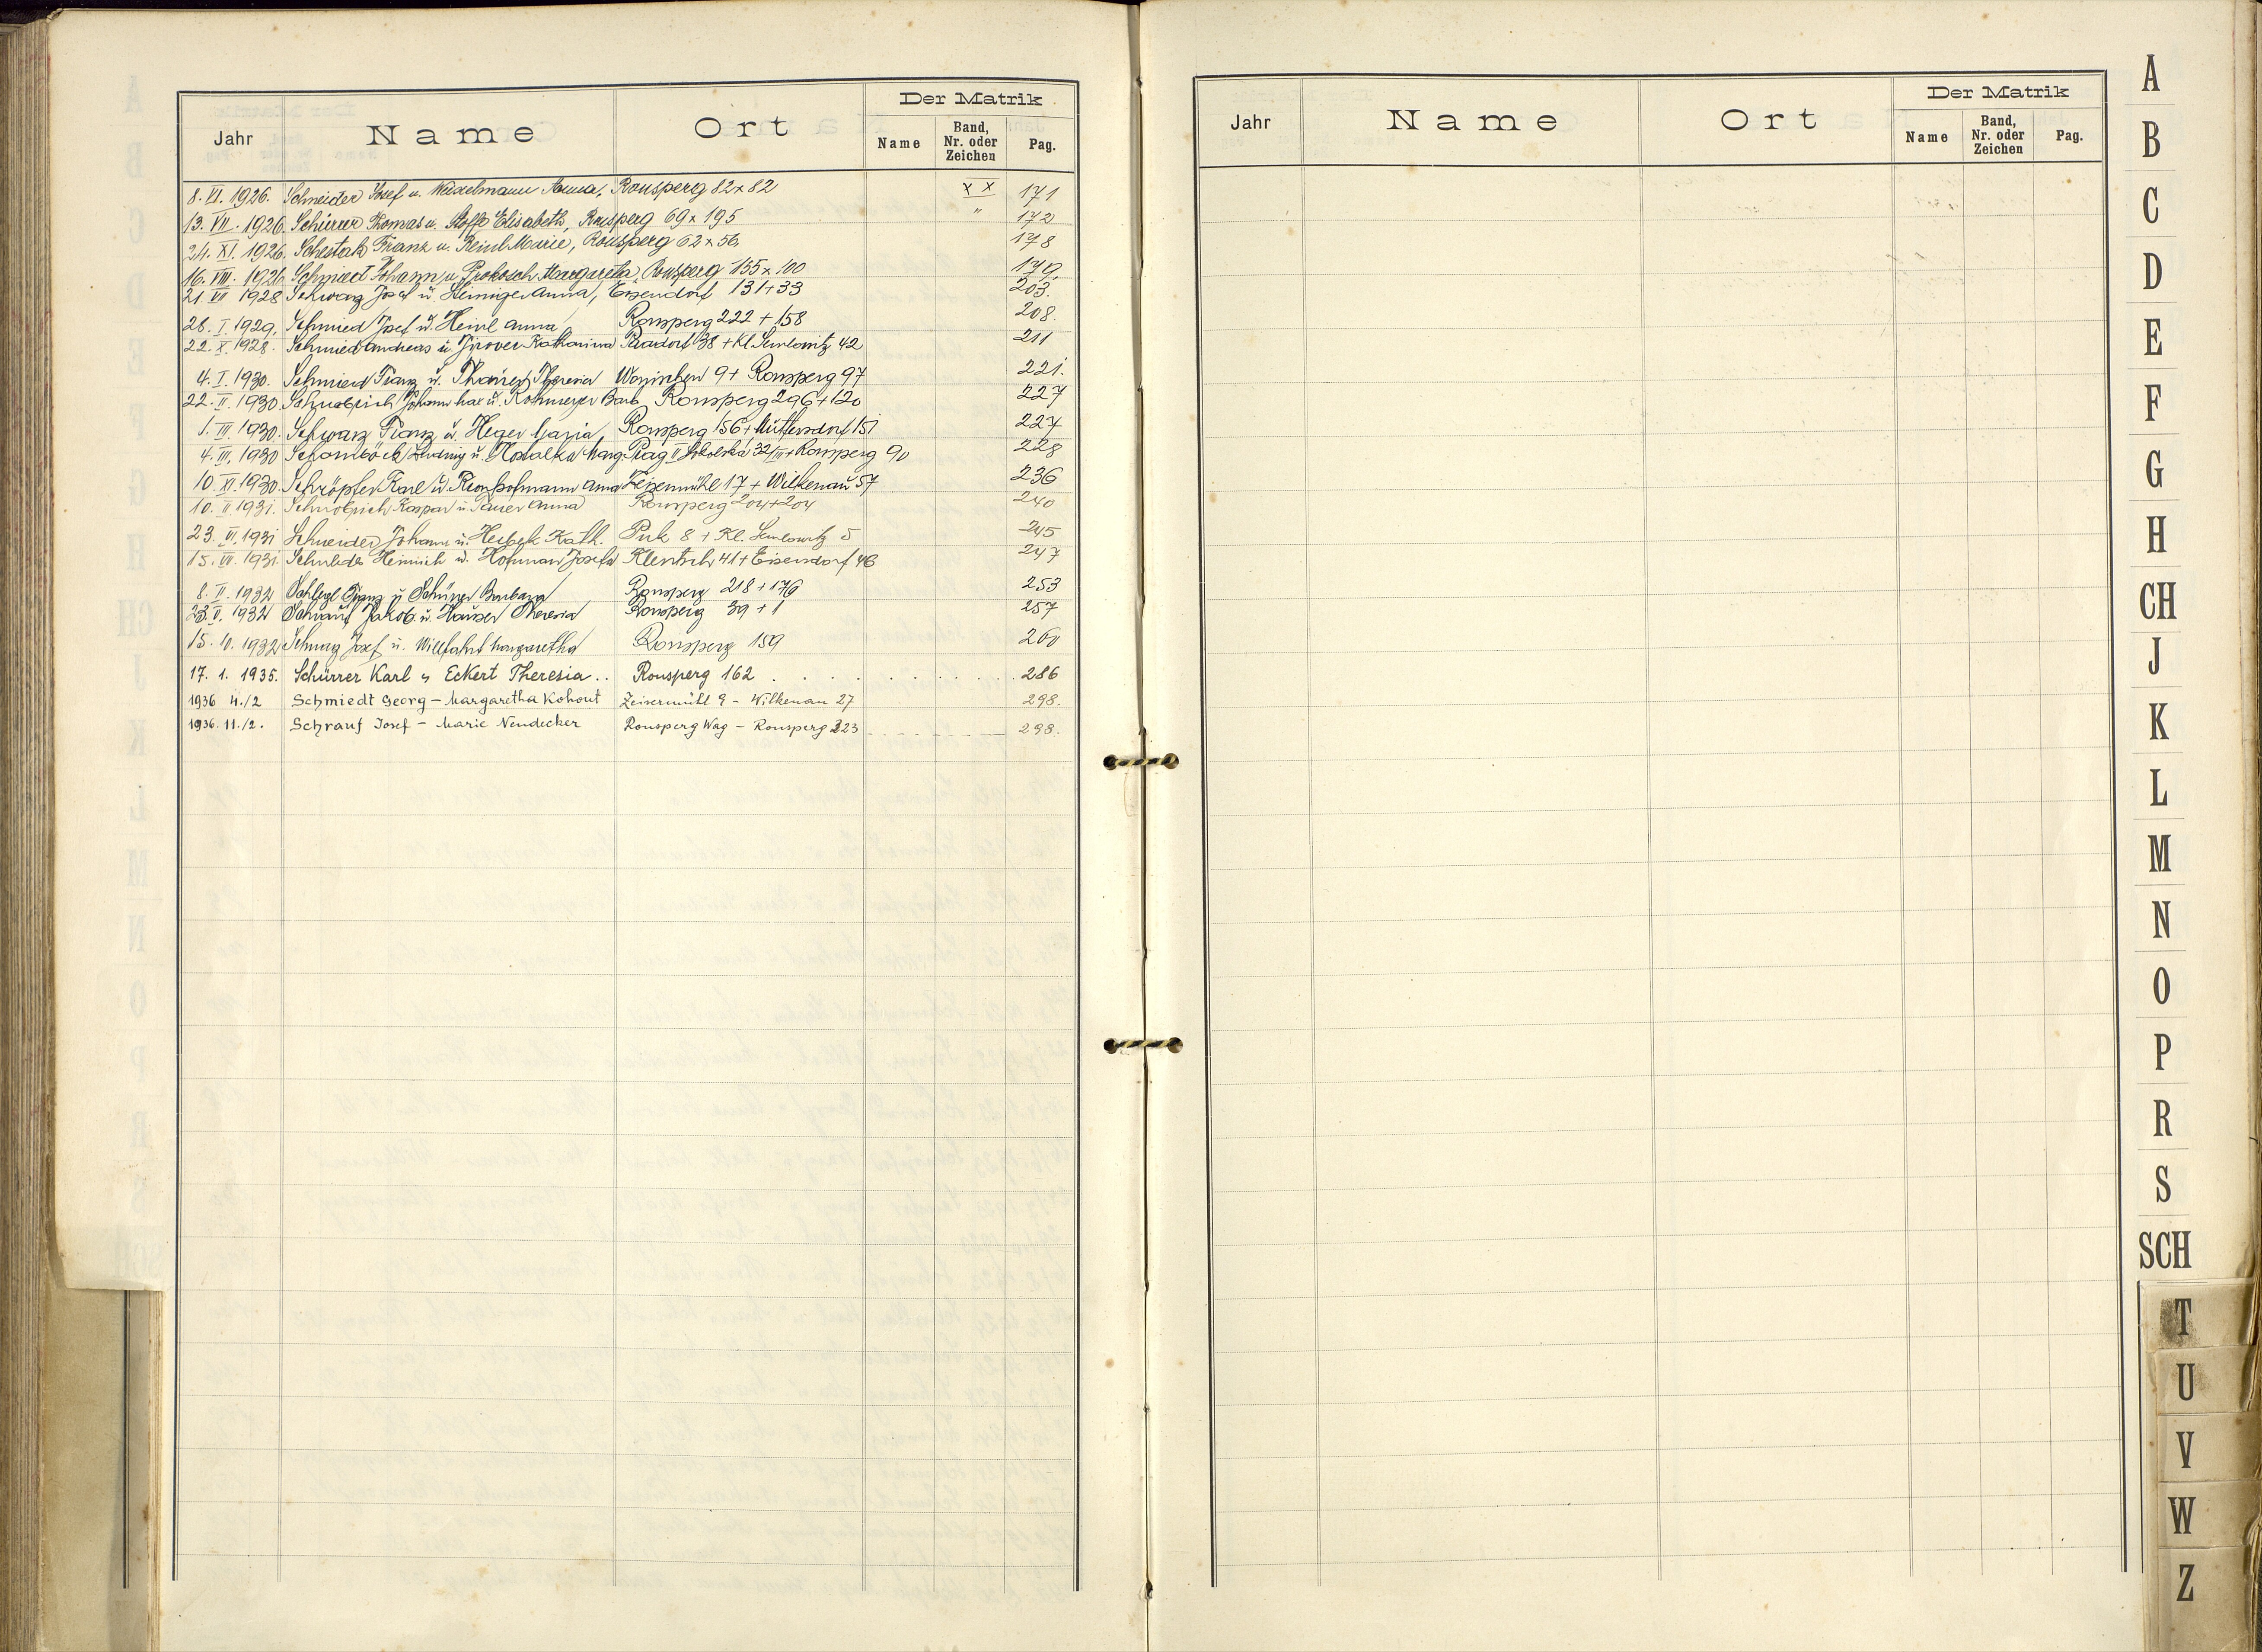 Jahr Name Ort Der Matrik
Name Band, Nr. oder Zeichen Pag.
8. VI. 1926. Schneider Josef u. Weixelmann Anna, Ronsperg 82 x 82 XX 171
13. VII. 1926. Schürrer Thomas u. Stoffl Elisabeth, Ronsperg 69 x 195 " 172
24. XI. 1926. Schestak Franz u. Reinl Marie, Ronsperg 62 x 56 178
16. VIII. 1926 Schmiedt Johann u. Prokosch Margareta, Ronsperg 155 x 100 179.
21 VII 1928 Schwarz Josef u. Anna, Eisendorf 131 + 33 203.
28. I. 1929. Schmied Josef u. Heinl Anna Ronsperg 222 + 158 208.
22. X. 1928. Schmied Andreas u. Jirovec Katharina 38 + Kl. Semlowitz 42 211
4. I. 1930. Schmied Franz u. Theresia 9 + Ronsperg 97 221.
22. II. 1930. Johann u. Rohmeyer Barb Ronsperg 296 + 120 227
1. III. 1930. Schwarz Franz u. Heger Maria, Ronsperg 156 + Muttersdorf 151 227
4. III. 1930 Ludwig u. Marg. Prag II 32/III + Ronsperg 90 228
10. XI. 1930. Schröpfer Karl u. Kronhofmann Anna Zeisermühl 17 + Wilkenau 57 236
10. II 1931. Kaspar u. Anna Ronsperg 204 + 204 240
23. VI. 1931 Schneider Johann u. Kath. 8 + Kl. Semlowitz 5 245
15. VII. 1931. Heinrich u. Hofman Josefa Klentsch 41 + Eisendorf 46 247
8. II. 1932 Schlegl Franz u. Schürrer Barbara Ronsperg 218 + 176 253
23. V. 1932 Schrauf Jakob u. Hauser Theresia Ronsperg 39 + 1 257
15. 10. 1932 Schwarz Josef u. Willfahrt Margaretha Ronsperg 159 260
17. 1. 1935. Schürrer Karl u Eckert Theresia . . Ronsperg 162 . . . . . . . . . 286
1936 4./2 Schmiedt Georg – Margaretha Kohout Zeisermühl 9 – Wilkenau 27 298.
1936. 11./2. Schrauf Josef – Marie Neudecker Ronsperg Wag – Ronsperg 223 298.
Jahr Name Ort Der Matrik
Name Band, Nr. oder Zeichen Pag.
A
B
C
D
E
F
G
H
CH
J
K
L
M
N
O
P
R
S
SCH
T
U
V
W
Z